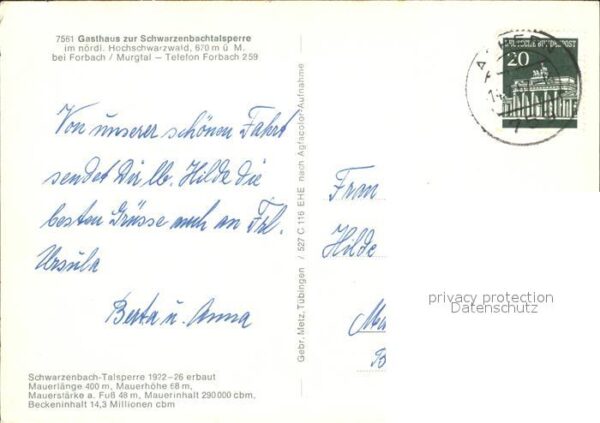 7561 Gasthaus zur Schwarzenbachtalsperre
im nördl. Hochschwarzwald, 670 m ü. M.
bei Forbach / Murgtal – Telefon Forbach 259
Von unserer schönen Fahrt
sendet Dir lb. Hilde die
besten Grüsse auch an Frl.
Ursula
Berta u. Anna
Schwarzenbach-Talsperre 1922-26 erbaut
Mauerlänge 400 m, Mauerhöhe 68 m,
Mauerstärke a. Fuß 48 m, Mauerinhalt 290 000 cbm,
Beckeninhalt 14,3 Millionen cbm
Gebr. Metz, Tübingen / 527 C 116 EHE nach Agfacolor-Aufnahme
DEUTSCHE BUNDESPOST
20
Frau
Hilde
privacy protection
Datenschutz